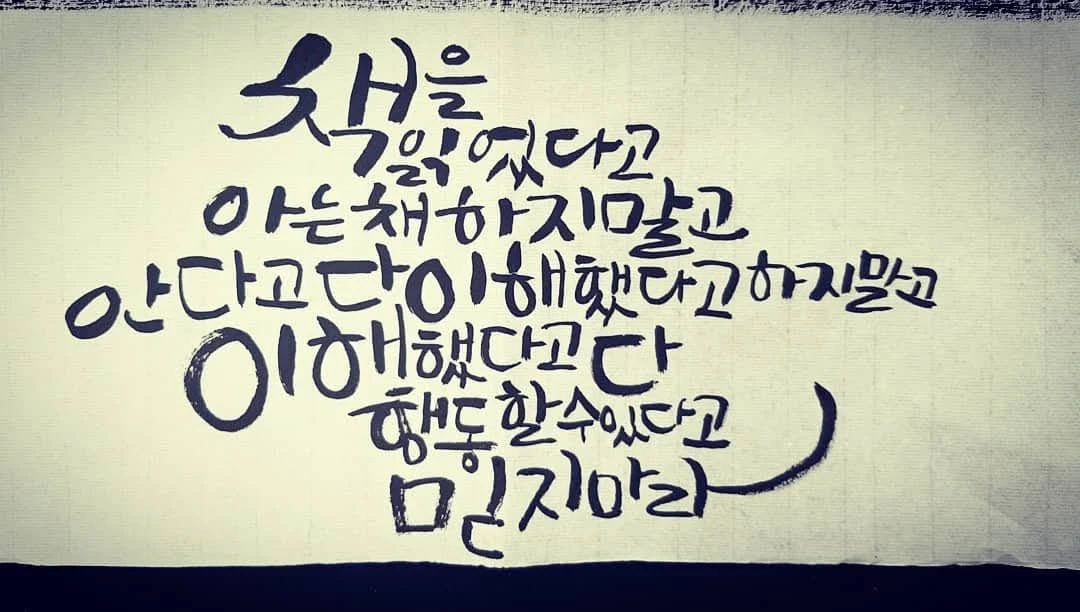 책을
읽었다고
아는채하지말고
안다고다이해했다고하지말고
이해했다고다
행동할수있다고
믿지마라